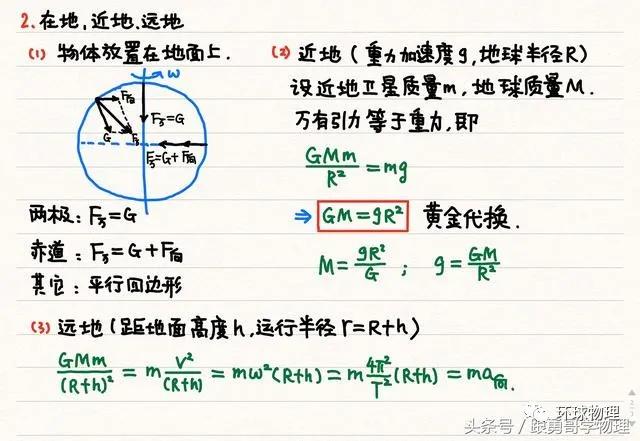 2.在地,近地,远地
(1) 物体放置在地面上.
ω
F向
F万=G
G
F万
F万=G+F向
两极: F万=G
赤道: F万=G+F向
其它: 平行四边形
(2) 近地 (重力加速度g,地球半径R)
设近地卫星质量m,地球质量M.
万有引力等于重力,即
GMm/R² = mg
⇒ GM=gR² 黄金代换.
M=gR²/G ; g=GM/R²
(3) 远地 (距地面高度h,运行半径r=R+h)
GMm/(R+h)² = m v²/(R+h) = mω²(R+h) = m 4π²/T² (R+h) = ma向.
环球物理
头条号/跟勇哥学物理